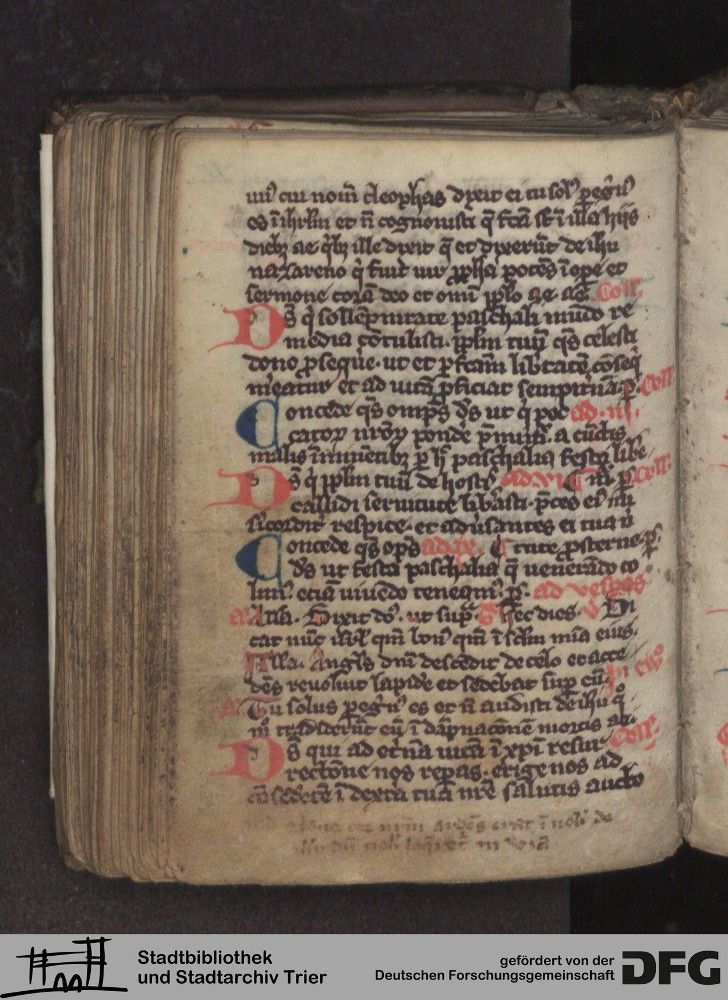 un' cui nom̄ cleophas dixit ei tu sol' pegin'
es ī ihrlm et n̄ cognouisti q̄ fcā st ī illa hiis
dieb; ae q'b; ille dixit q̄ et dixerūt de ihu
nazareno q' fuit uir ppha potēs ī ope et
sermone corā deo et omni pplo ae ae. Coll'.
Ds q' sollempnitate paschali mūdo re
media ətulisti. pplm tuū qs celesti
dono pseqūe. ut et pfcam libtatē əseq'
meatur et ad uitā pficiat sempitnā. p. Coll'.
Concede qs omps ds ut q' pec ad. iii.
catoꝝ nroꝝ pondē pmim'. a cūctis
malis īminētib; p h' paschalia festa libe
Ds q' pplm tuū de hostis ad vi m'. p Coll'.
callidi seruitute libasti. pces ei' mi
s'icordit' respice. et adusantes ei tua ū
Concede qs ops ad ix. tute psterne. p.
ds ut festa paschalia q̄ uenerādo co
lim'. etiā uiuēdo teneam'. p. ad vespas
Alla. Dixit dn's. ut sup'. Hec dies. V Di
cat nūc isrl' qm̄ bon' qm̄ ī sclm mia eius.
Alla. Angls dnī descēdit de celo et acce
dēs reuoluit lapide et sedebat sup eū. In ew°
Tu solus pegin' es et n̄ audisti de ihu q°
m° tradiderūt eū ī dāpnationē mortis ae. Coll'.
Ds qui ad etnā uitā ī xpi resur
rectione nos repas. erige nos ad
ə sedētē ī dextra tua nre salutis aucto
Stadtbibliothek
und Stadtarchiv Trier
gefördert von der
Deutschen Forschungsgemeinschaft
DFG